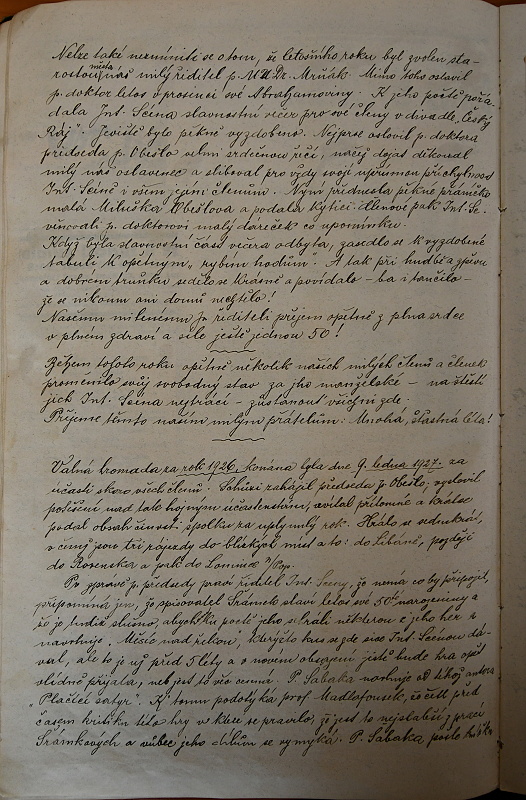 Nelze také nezmíniti se o tom, že letošního roku byl zvolen sta-
rostou města náš milý ředitel p. MUDr. Mrňák. Mimo toho oslavil
p. doktor letos v prosinci své Abrahamoviny. K jeho poctě pořá-
dala Int. Scéna slavnostní večer pro své členy v divadle „Český
Ráj“. Jeviště bylo pěkně vyzdobeno. Nejprve oslovil p. doktora
předseda p. Obešlo velmi srdečnou řečí, načež dojat děkoval
milý náš oslavenec a sliboval pro vždy svoji upřímnou příchylnost
Int. Scéně i všem jejím členům. Nyní přednesla pěkně
malá Miluška Obešlova a podala kytici. Členové pak Int. Sc.
věnovali p. doktorovi malý dáreček co upomínku.
Když byla slavnostní část večera odbyta, zasedlo se k vyzdobené
tabuli k opětným „rybím hodům“. A tak při hudbě a zpěvu
a dobrém trunku sedělo se krásně a povídalo – ba i tančilo –
že se nikomu ani domů nechtělo!
Našemu milenému p. řediteli přejem opětně z plna srdce
v plném zdraví a síle ještě jednou 50!
Během tohoto roku opětně několik našich milých členů a členek
proměnilo svůj svobodný stav za jho manželské – na štěstí
jich Int. Scéna neztrácí – zůstanou všichni zde.
Přejeme těmto našim milým přátelům: Mnohá, šťastná léta!
Valná hromada za rok 1926, konána byla dne 9. ledna 1927. za
účasti skoro všech členů. Schůzi zahájil předseda p. Obešlo, vyslovil
potěšení nad tak hojným účastenstvím, uvítal přítomné a krátce
podal obsah činnosti spolku za uplynulý rok. Hrálo se sedmkrát,
v čemž jsou tři zájezdy do blízkých míst a to: do Libáně, později
do Rovenska a pak do Lomnice n/Pop.
Po zprávě p. předsedy praví ředitel Int. Sceny, že nemá co by připojil,
připomíná jen, že spisovatel Šrámek slaví letos své 50té narozeniny a
že je tudíž slušno, abychom k poctě jeho sehráli některou z jeho her a
navrhuje „Měsíc nad řekou“, kterýžto kus se zde sice Int. Scénou dá-
val, ale to je už před 5 lety a v novém obsazení jistě bude hra opět
vlídně přijata, neb jest to věc cenná. P. Sabaka navrhuje od téhož autora
„Plačící satyr“. K tomu podotýká prof. Madlafousek, že četl před
časem kritiku této hry, ve které se pravilo, že jest to nejslabší z prací
Šrámkových a vůbec jeho dílům se vymyká. P. Sabaka